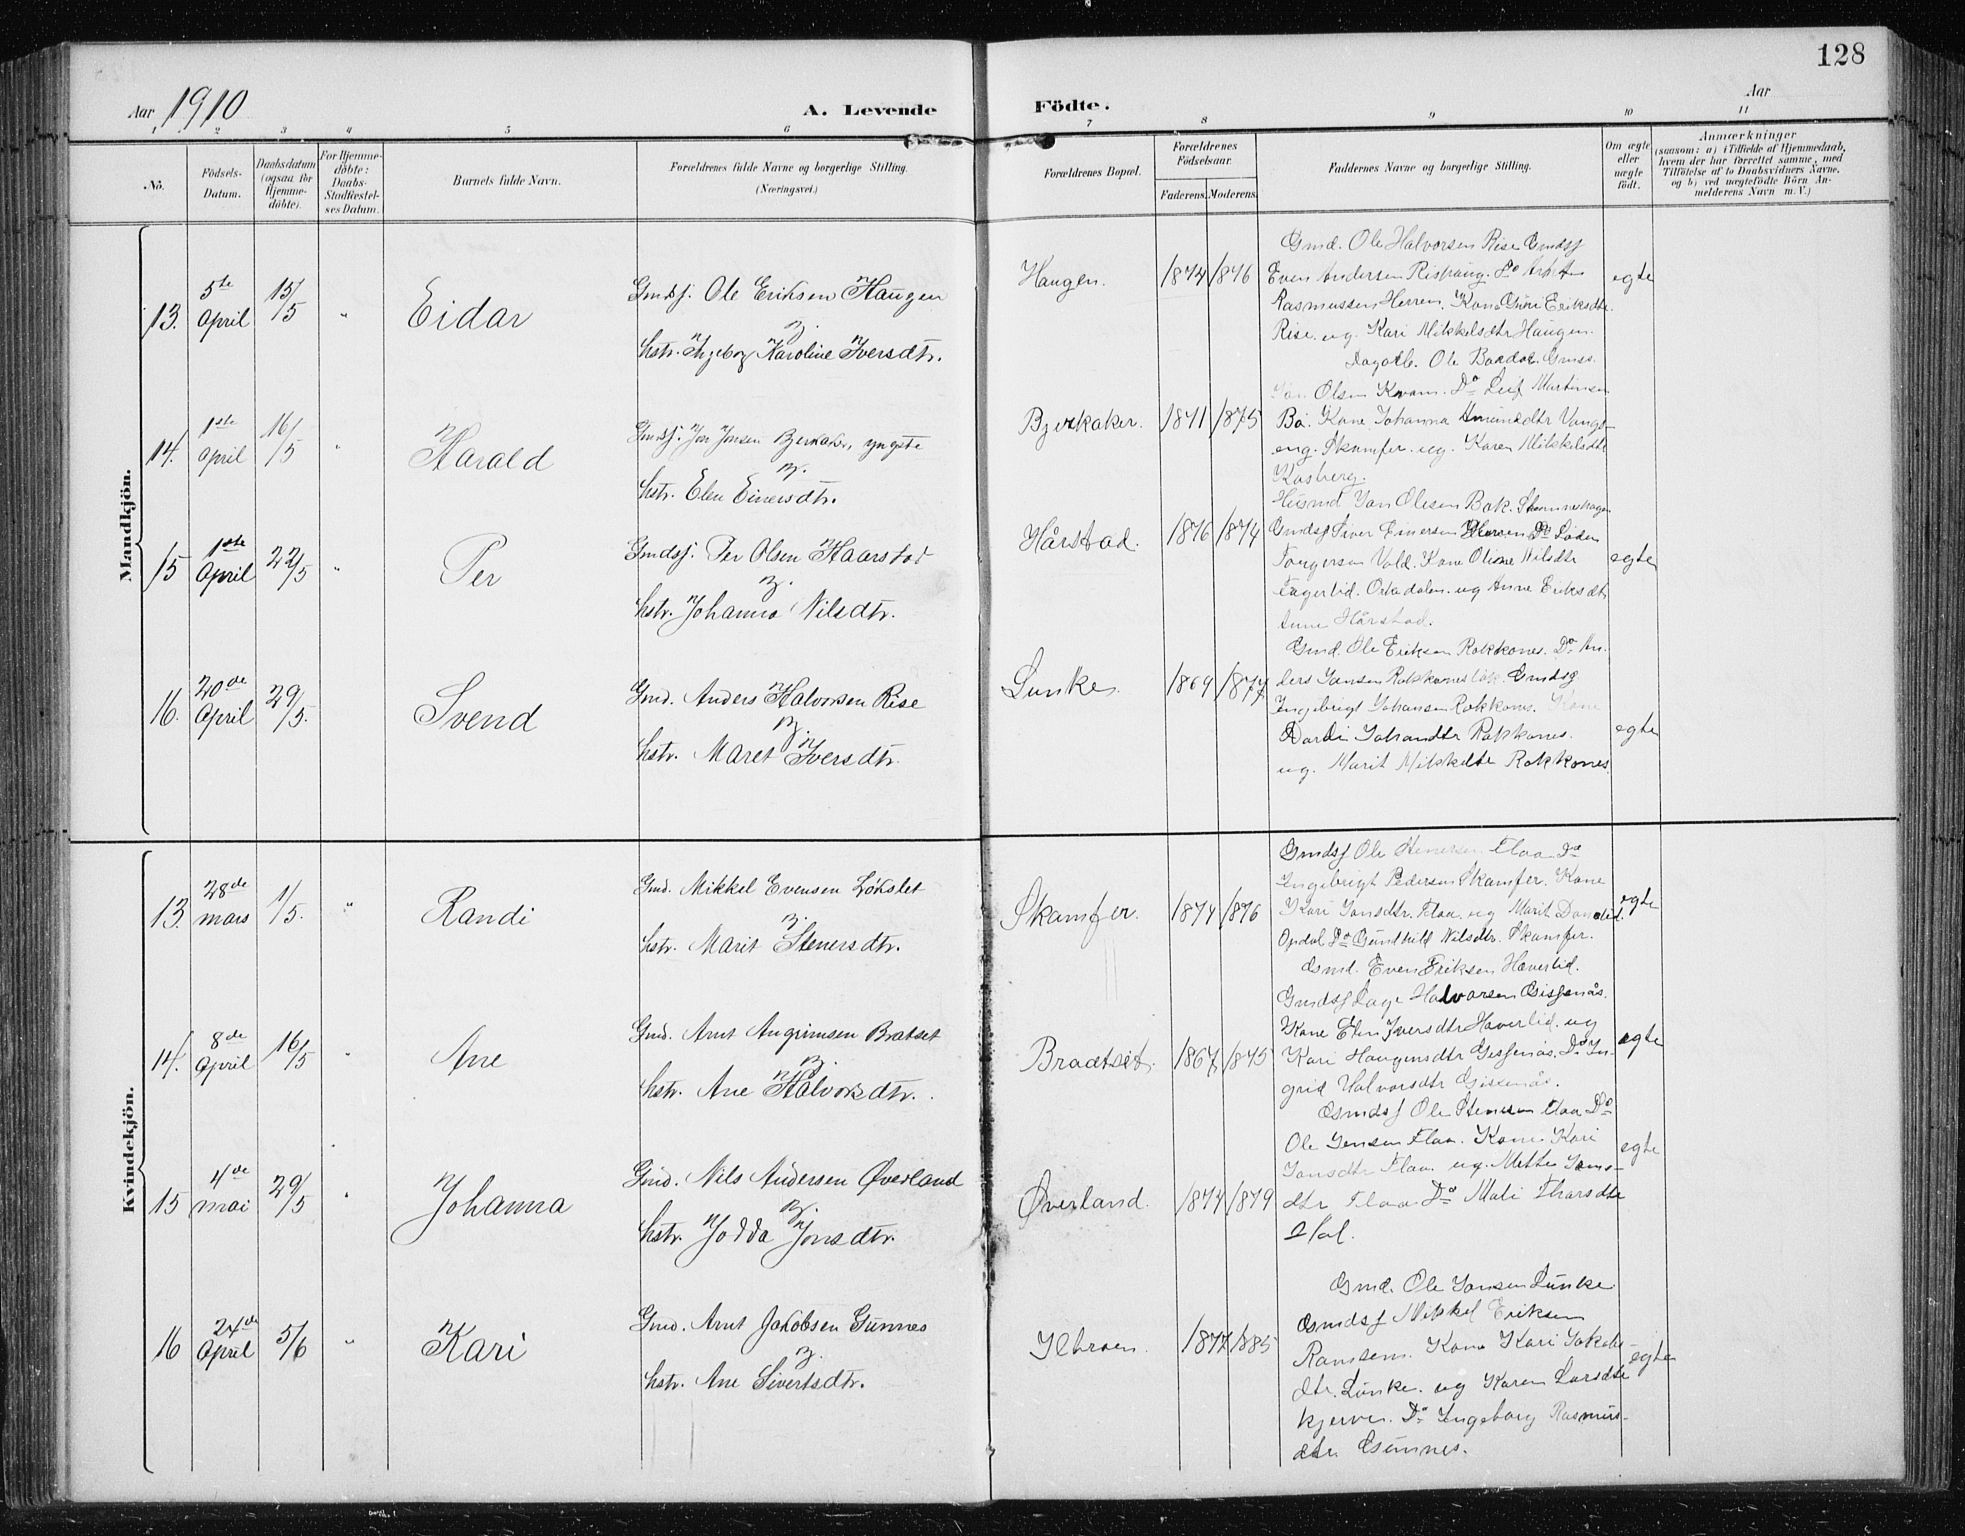 128
Aar 1910
A. Levende Födte.
Aar
1 2 3 4 5 6 7 8 9 10 11
No.
Födsels-Datum.
Daabsdatum (ogsaa for Hjemme-döbte).
For Hjemme-döbte: Daabs-Stadfæstel-ses Datum.
Barnets fulde Navn.
Forældrenes fulde Navne og borgerlige Stilling. (Næringsvei.)
Forældrenes Bopæl.
Forældrenes Födselsaar.
Faderens. Moderens.
Faddernes Navne og borgerlige Stilling.
Om ægte eller uægte födt.
Anmærkninger
(saasom: a) i Tilfælde af Hjemmedaab, hvem der har forrettet samme, med Tilföielse af to Daabsvidners Navne, og b) ved uægtefödte Börn An-melderens Navn m. V.)
Mandkjön.
13. 5te April 15/5 " Eidar
Gmdsj. Ole Eriksen Haugen
Hstr. Ingeborg Karoline Iversdtr.
Haugen. 1874 1876
Gmd. Ole Halvorsen Rise Gmdsj
Even Andersen
Rasmussen Herrem. Kone Guri Eriksdtr.
Rise. ug. Kari Mikkelsdtr Haugen.
egte
14. 1ste April 16/5 " Harald
Gmdsj. Jon Jonsen Bjerkaker, yngste
Hstr. Elen Einersdtr.
Bjerkaker. 1871 1875
Ole
Olsen Kvam. Do Leif Martinsen
Bö. Kone Johanna Amundsdtr Vangs-
eng. Skamfer. ug. Karen Mikkelsdtr
Kosberg.
15 1ste April 22/5 " Per
Gmdsj. Per Olsen Haarstad
Hstr. Johanna Nilsdtr.
Hårstad. 1876 1874
Husmd Jon Olesen Bak.
Gmdsj Siver Einersen Do
Vold. Kone Oline Nilsdtr
Fagerlid. Orkedalen. ug Anne Eriksdtr
Hårstad.
egte
16. 20de April 29/5. Svend
Gmd. Anders Halvorsen Rise
Hstr. Maret Iversdtr.
Lunke. 1869 1877
Gmd. Ole Eriksen Rokkones. Do An-
ders Jonsen Rokkones Gmdsj
Ingebrigt Johansen Rokkones. Kone
Dordi Johandtr Rokkones.
ug. Marit Mikkeldtr Rokkones
egte
Kvindekjön.
13. 28de mars 1/5. " Randi
Gmd. Mikkel Evensen Lökslet
Hstr. Marit Stenersdtr.
Skamfer. 1874 1876
Gmdsj Ole Stenersen Flaa Do
Ingebrigt Pedersen Skamfer. Kone
Kari Jonsdtr. Flaa. ug Marit
Opdal Do Gundhild Nilsdtr. Skamfer.
egte
14. 8de April 16/5 Ane
Gmd. Arnt Angrimsen Bratset
Hstr. Ane Halvorsdtr.
Bradtset. 1867 1875
Gmd. Even Eriksen Haverlid.
Gmdsj Dage Halvorsen Gisjenås.
Kone Elen Iversdtr Haverlid. ug
Kari Haugensdtr Gisjenås. Do In-
grid Halvorsdtr Gissenås.
egte
15 4de mai 29/5 Johanna
Gmd. Nils Andersen Øverland
Hstr. Jodda Jonsdtr.
Øverland. 1874 1879
Gmdsj Ole Stenersen Flaa Do
Ole Jensen Flaa. Kone Kari
Jonsdtr Flaa. ug. Mette Jons-
dtr Flaa Do Mali Thorsdtr
Hol.
egte
16 24de April 5/6 " Kari
Gmd. Arnt Jakobsen Gunnes
Hstr. Ane Sivertsdtr.
1877 1885
Gmd. Ole Jonsen Lunke
Gmdsj Mikkel Eriksen
Ramsem. Kone Kari Jakobs-
dtr. Lunke. ug Karen Larsdtr
Kjerve. Do Ingeborg Rasmus-
dtr. Gunnes.
egte